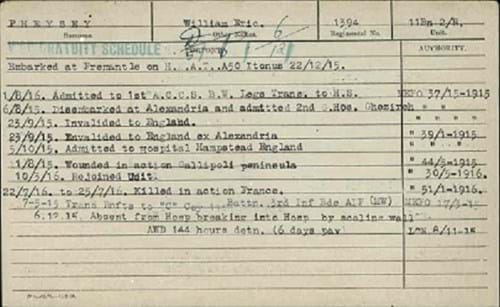 PHEYSEY William Eric. 1394 11Bn 2/R.
Surname Other Names. Regimental No. Unit.
WAR GRATUITY SCHEDULE REPORT. AUTHORITY.
Embarked at Fremantle on H. .A.T. A50 Itonus 22/12/15.
1/8/16. Admitted to 1st A.C.C.S. B.W. Legs Trans. to H.S. MEFO 37/15-1915
6/8/15. Disembarked at Alexandria and admitted 2nd G.Hos. Ghezireh " " "
23/9/15. Invalided to England. " " "
23/9/15. Envalided to England ex Alexandria " 39/1-1915
5/10/15. Admitted to hospital Hampstead England " " "
1/8/15. Wounded in action Gallipoli peninsula " 44/5-1915
10/3/16. Rejoined Unit. " 30/5-1916.
22/7/16. to 25/7/16. Killed in action France. " 51/1-1916.
7-5-15 Trans Rnfts to "C" Coy Battn. 3rd Inf Bde AIF (MW) MEFO 17/3-15
6.12.15. Absent from Hosp breaking into Hosp by scaling wall
AND 144 hours detn. (6 days pay) 8/11-15